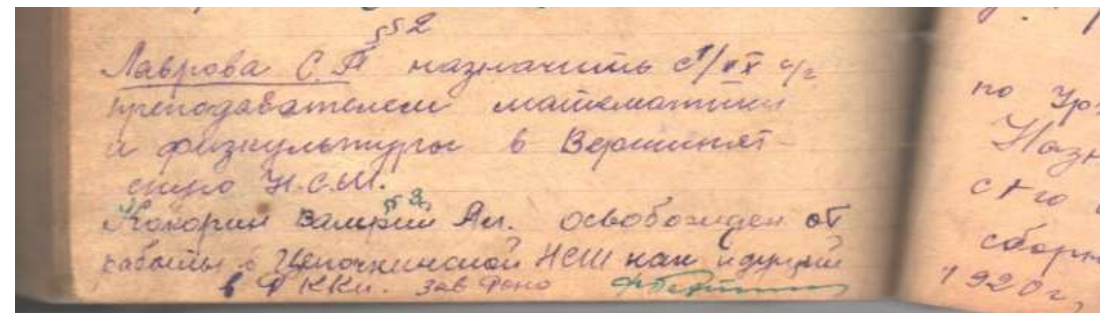 §§2
Лаврова С.П назначить с 1/IX с/г
преподавателем математики
и физкультуры в Вершинят-
скую Н.С.Ш.
§ 3
Кокорин Валерий Ал. освобожден от
работы в Цепочкинской НСШ как идущий
в РККА. Зав Роно
по
Назн
с 1 го
сборн
1920 г,